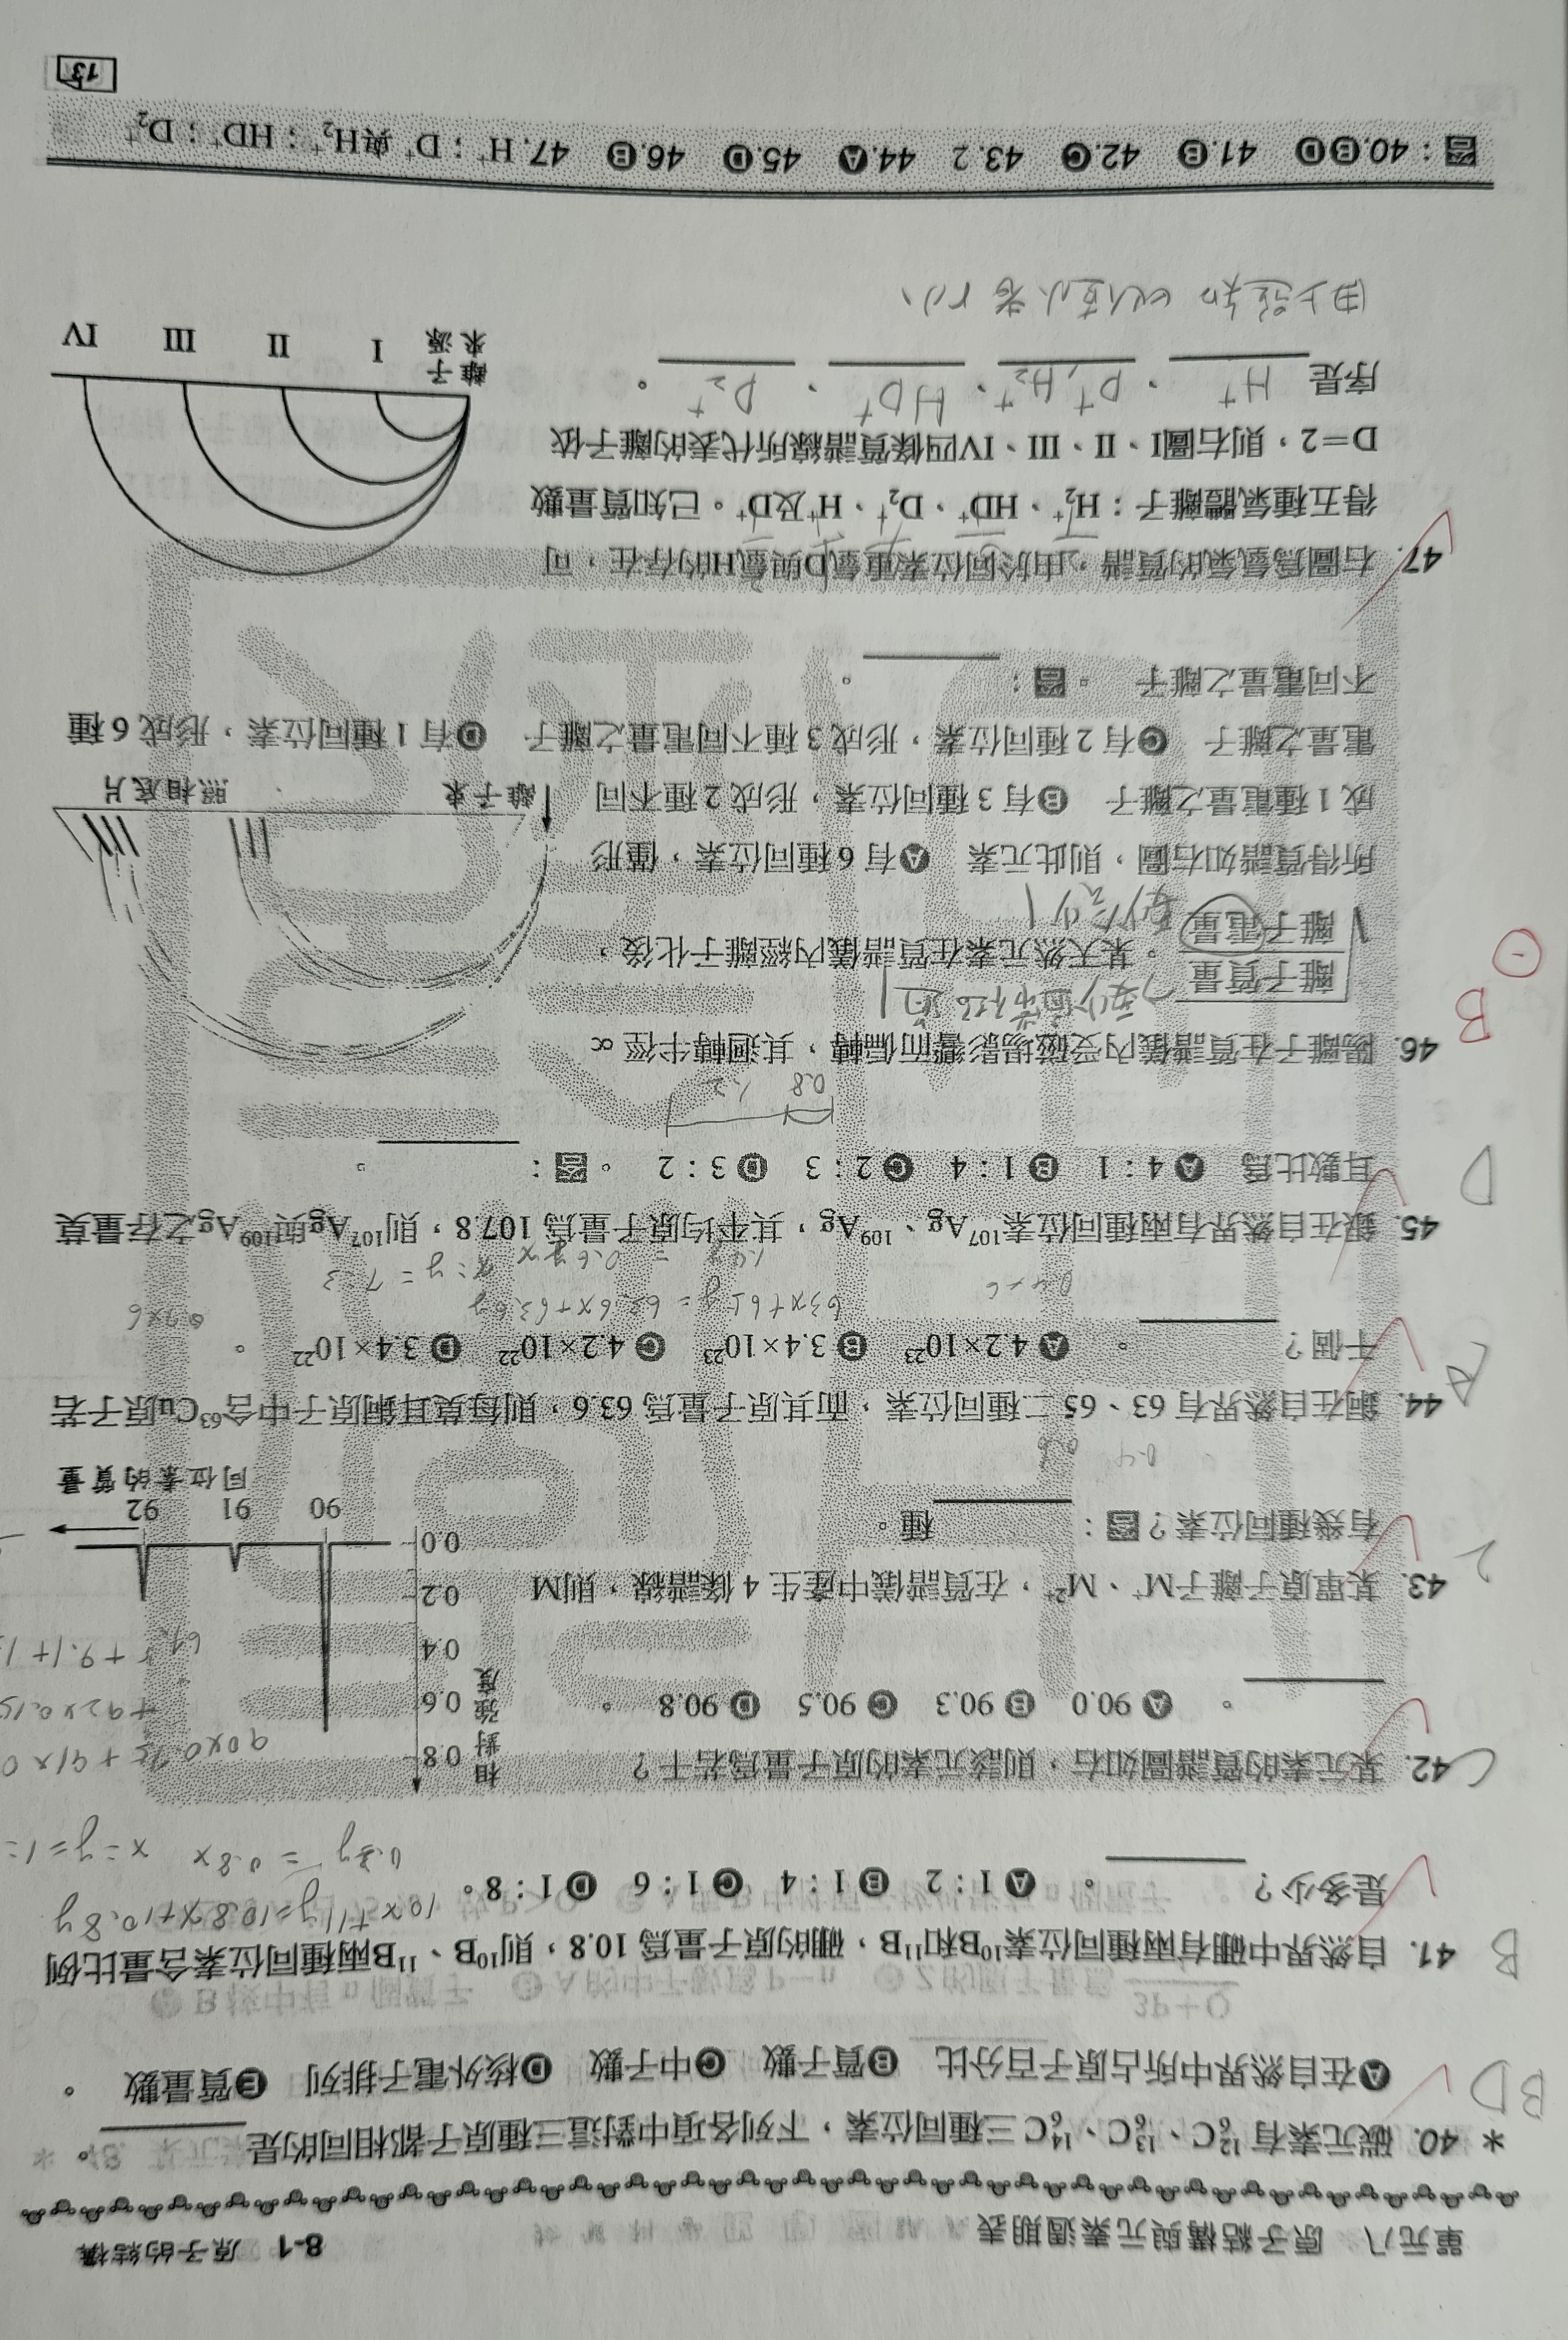 單元八 原子結構與元素週期表
8-1 原子的結構
* 40. 碳元素有 ¹²₆C、¹³₆C、¹⁴₆C 三種同位素，下列各項中對這三種原子都相同的是＿＿＿。
Ⓐ在自然界中所占原子百分比 Ⓑ質子數 Ⓒ中子數 Ⓓ核外電子排列 Ⓔ質量數 。
BD
41. 自然界中硼有兩種同位素¹⁰B和¹¹B，硼的原子量為 10.8，則¹⁰B、¹¹B兩種同位素含量比例
是多少？＿＿＿。 Ⓐ 1：2 Ⓑ 1：4 Ⓒ 1：6 Ⓓ 1：8。
B
10x+11y=10.8x+10.8y
0.2y=0.8x x=y=1=
42. 某元素的質譜圖如右，則該元素的原子量為若干？
＿＿＿。 Ⓐ 90.0 Ⓑ 90.3 Ⓒ 90.5 Ⓓ 90.8 。
C
相對強度
0.8
0.6
0.4
0.2
0.0
90 91 92
同位素的質量
+92×0.15
43. 某單原子離子M⁺、M²⁺，在質譜儀中產生 4 條譜線，則M
有幾種同位素？答：＿＿＿種。
2
44. 銅在自然界有 63、65 二種同位素，而其原子量為 63.6，則每莫耳銅原子中含⁶³Cu原子若
干個？＿＿＿。 Ⓐ 4.2×10²³ Ⓑ 3.4×10²³ Ⓒ 4.2×10²² Ⓓ 3.4×10²² 。
A
63x+65y=63.6x+63.6y
1.4y = 0.6x x=y=7=3
45. 銀在自然界有兩種同位素¹⁰⁷Ag、¹⁰⁹Ag，其平均原子量為 107.8，則¹⁰⁷Ag與¹⁰⁹Ag之存量莫
耳數比為 Ⓐ 4：1 Ⓑ 1：4 Ⓒ 2：3 Ⓓ 3：2 。答：＿＿＿。
D
0.8 1.2
46. 陽離子在質譜儀內受磁場影響而偏轉，其迴轉半徑 ∝
離子質量
離子電量
。某天然元素在質譜儀內經離子化後，
所得質譜如右圖，則此元素 Ⓐ有 6 種同位素，僅形
成 1 種電量之離子 Ⓑ有 3 種同位素，形成 2 種不同
電量之離子 Ⓒ有 2 種同位素，形成 3 種不同電量之離子 Ⓓ有 1 種同位素，形成 6 種
不同電量之離子 。答：＿＿＿。
B
離子束
照相底片
47. 右圖為氫氣的質譜，由於同位素重氫D與氫H的存在，可
得五種氣體離子：H₂⁺、HD⁺、D₂⁺、H⁺及D⁺。已知質量數
D＝2，則右圖I、II、III、IV四條質譜線所代表的離子依
序是 H⁺ 、 D⁺, H₂⁺ 、 HD⁺ 、 D₂⁺ 。
離子來源
I II III IV
答：40.ⒷⒹ 41.Ⓑ 42.Ⓒ 43. 2 44.Ⓐ 45.Ⓓ 46.Ⓑ 47. H⁺；D⁺ 與H₂⁺；HD⁺；D₂⁺
13